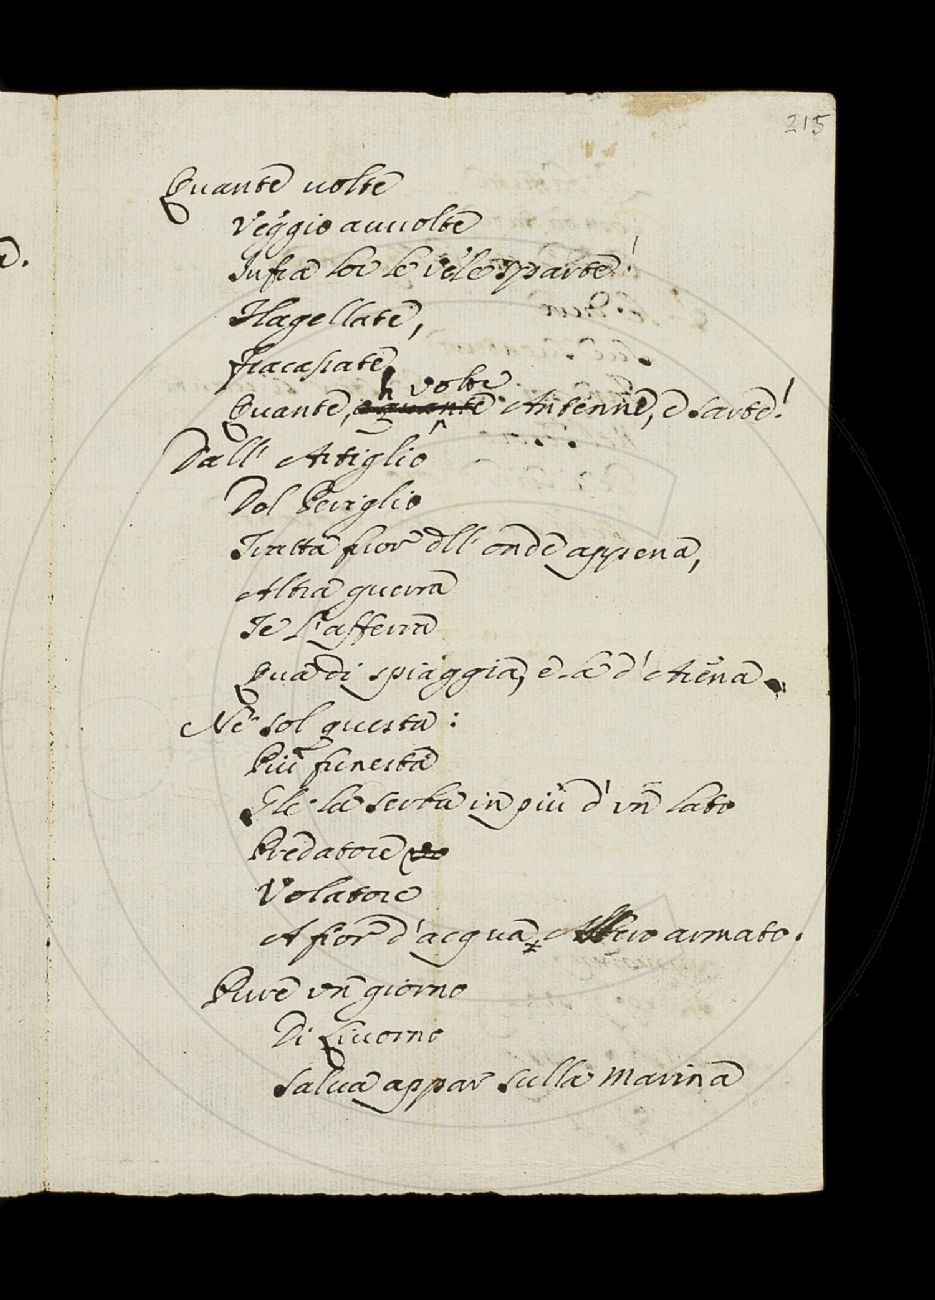 215
Quante uolte
Veggio auuolte
Infra lor le vele sparte!
Flagellate,
Fracassate
Quante, volte Antenne, e sarte!
Dall' Artiglio
Del Periglio
Tratta fuor dell' onde appena,
Altra guerra
Te l'afferra
Qua di spiaggia, e là d' Arena.
Nè sol questa:
Più funesta
Gle la serba in più d' vn lato
Predatore
Volatore
A fior d'acqua armato.
Pure vn giorno
Di Liuorno
Salua appar sulla Marina
a.